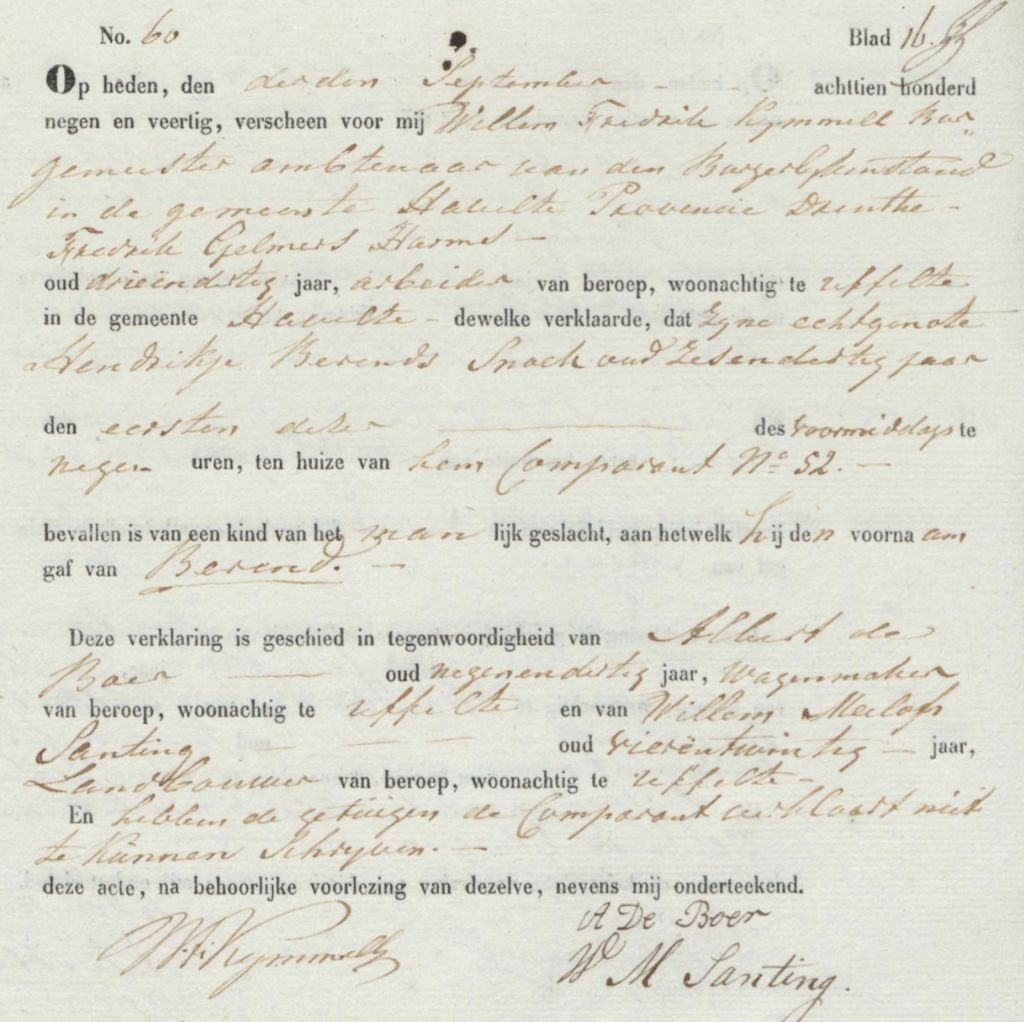 No. 60 Blad 16.
Op heden, den derden September - achttien honderd
negen en veertig, verscheen voor mij Willem Fredrik Kymmell Bur-
gemeester ambtenaar van den Burgerlykenstand
in de gemeente Havelte Provencie Drenthe -
Fredrik Gelmers Harms -
oud drieëndertig jaar, arbeider van beroep, woonachtig te Uffelte
in de gemeente Havelte - dewelke verklaarde, dat zyne echtgenote
Hendrikje Berends Snoek oud zesendertig jaar
den eersten dezer des voormiddags te
negen uren, ten huize van hem Comparant No 52. -
bevallen is van een kind van het manlijk geslacht, aan hetwelk hij den voornaam
gaf van Berend. -
Deze verklaring is geschied in tegenwoordigheid van Albert de
Boer - oud negenendertig jaar, Wagenmaker
van beroep, woonachtig te Uffelte en van Willem Meelofs
Santing - - - oud vierentwintig - jaar,
Landbouwer van beroep, woonachtig te Uffelte -
En hebben de getuigen de Comparant verklaart niet
te kunnen Schryven. -
deze acte, na behoorlijke voorlezing van dezelve, nevens mij onderteekend.
A De Boer
W. F. Kymmell
W M Santing.